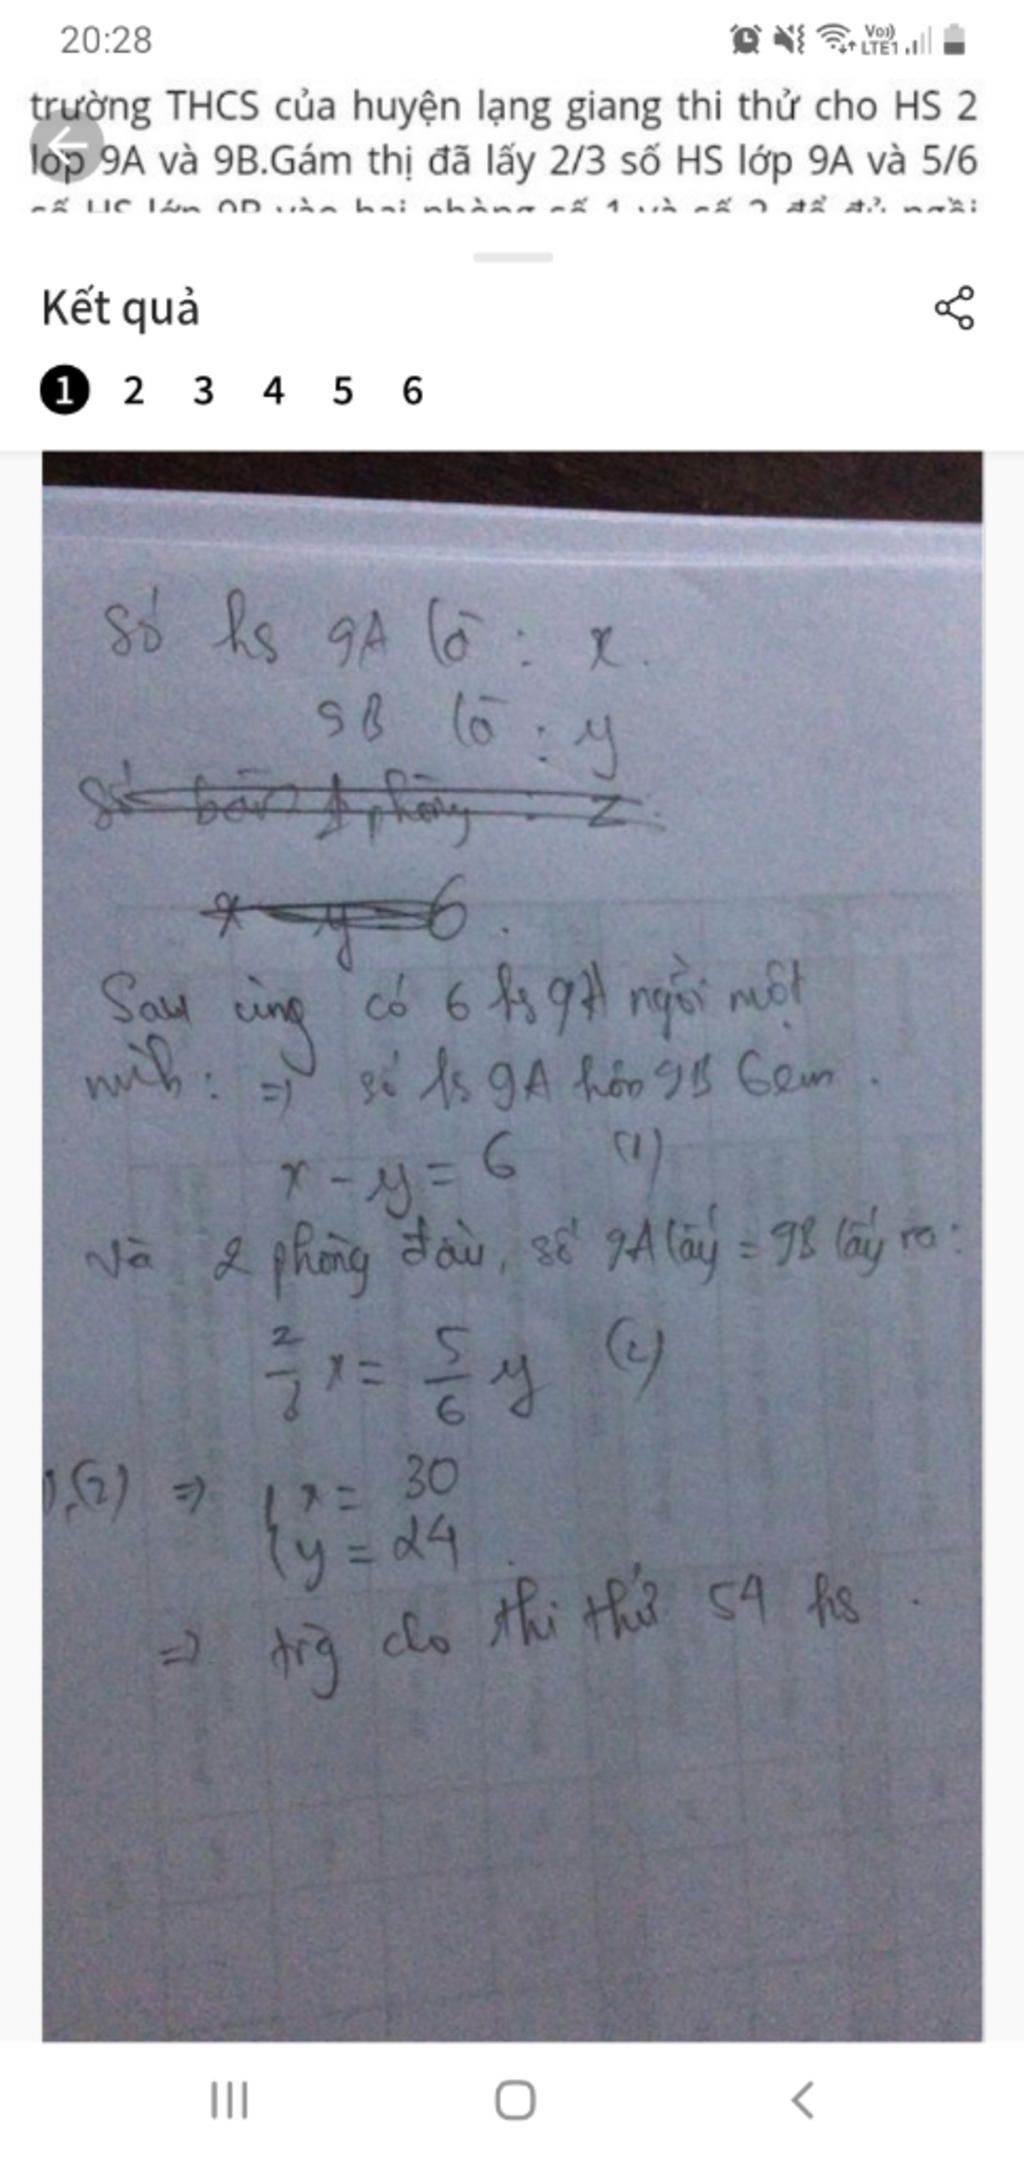 20:28
Vo))
LTE1
trường THCS của huyện lạng giang thi thử cho HS 2
lớp 9A và 9B.Gám thị đã lấy 2/3 số HS lớp 9A và 5/6
số HS lớp 9B vào hai phòng số 1 và số 2 để đủ ngồi
Kết quả
1 2 3 4 5 6
Số hs 9A là : x.
9B là : y
Số bàn 1 phòng : z.
x - y = 6.
Sau cùng có 6 hs 9A ngồi một
mình : => số hs 9A hơn 9B 6 em.
x - y = 6 (1)
Và 2 phòng đầu, số 9A lấy = 9B lấy ra :
2/3 x = 5/6 y (2)
),(2) => { x = 30
{ y = 24.
=> trg cho thi thử 54 hs.